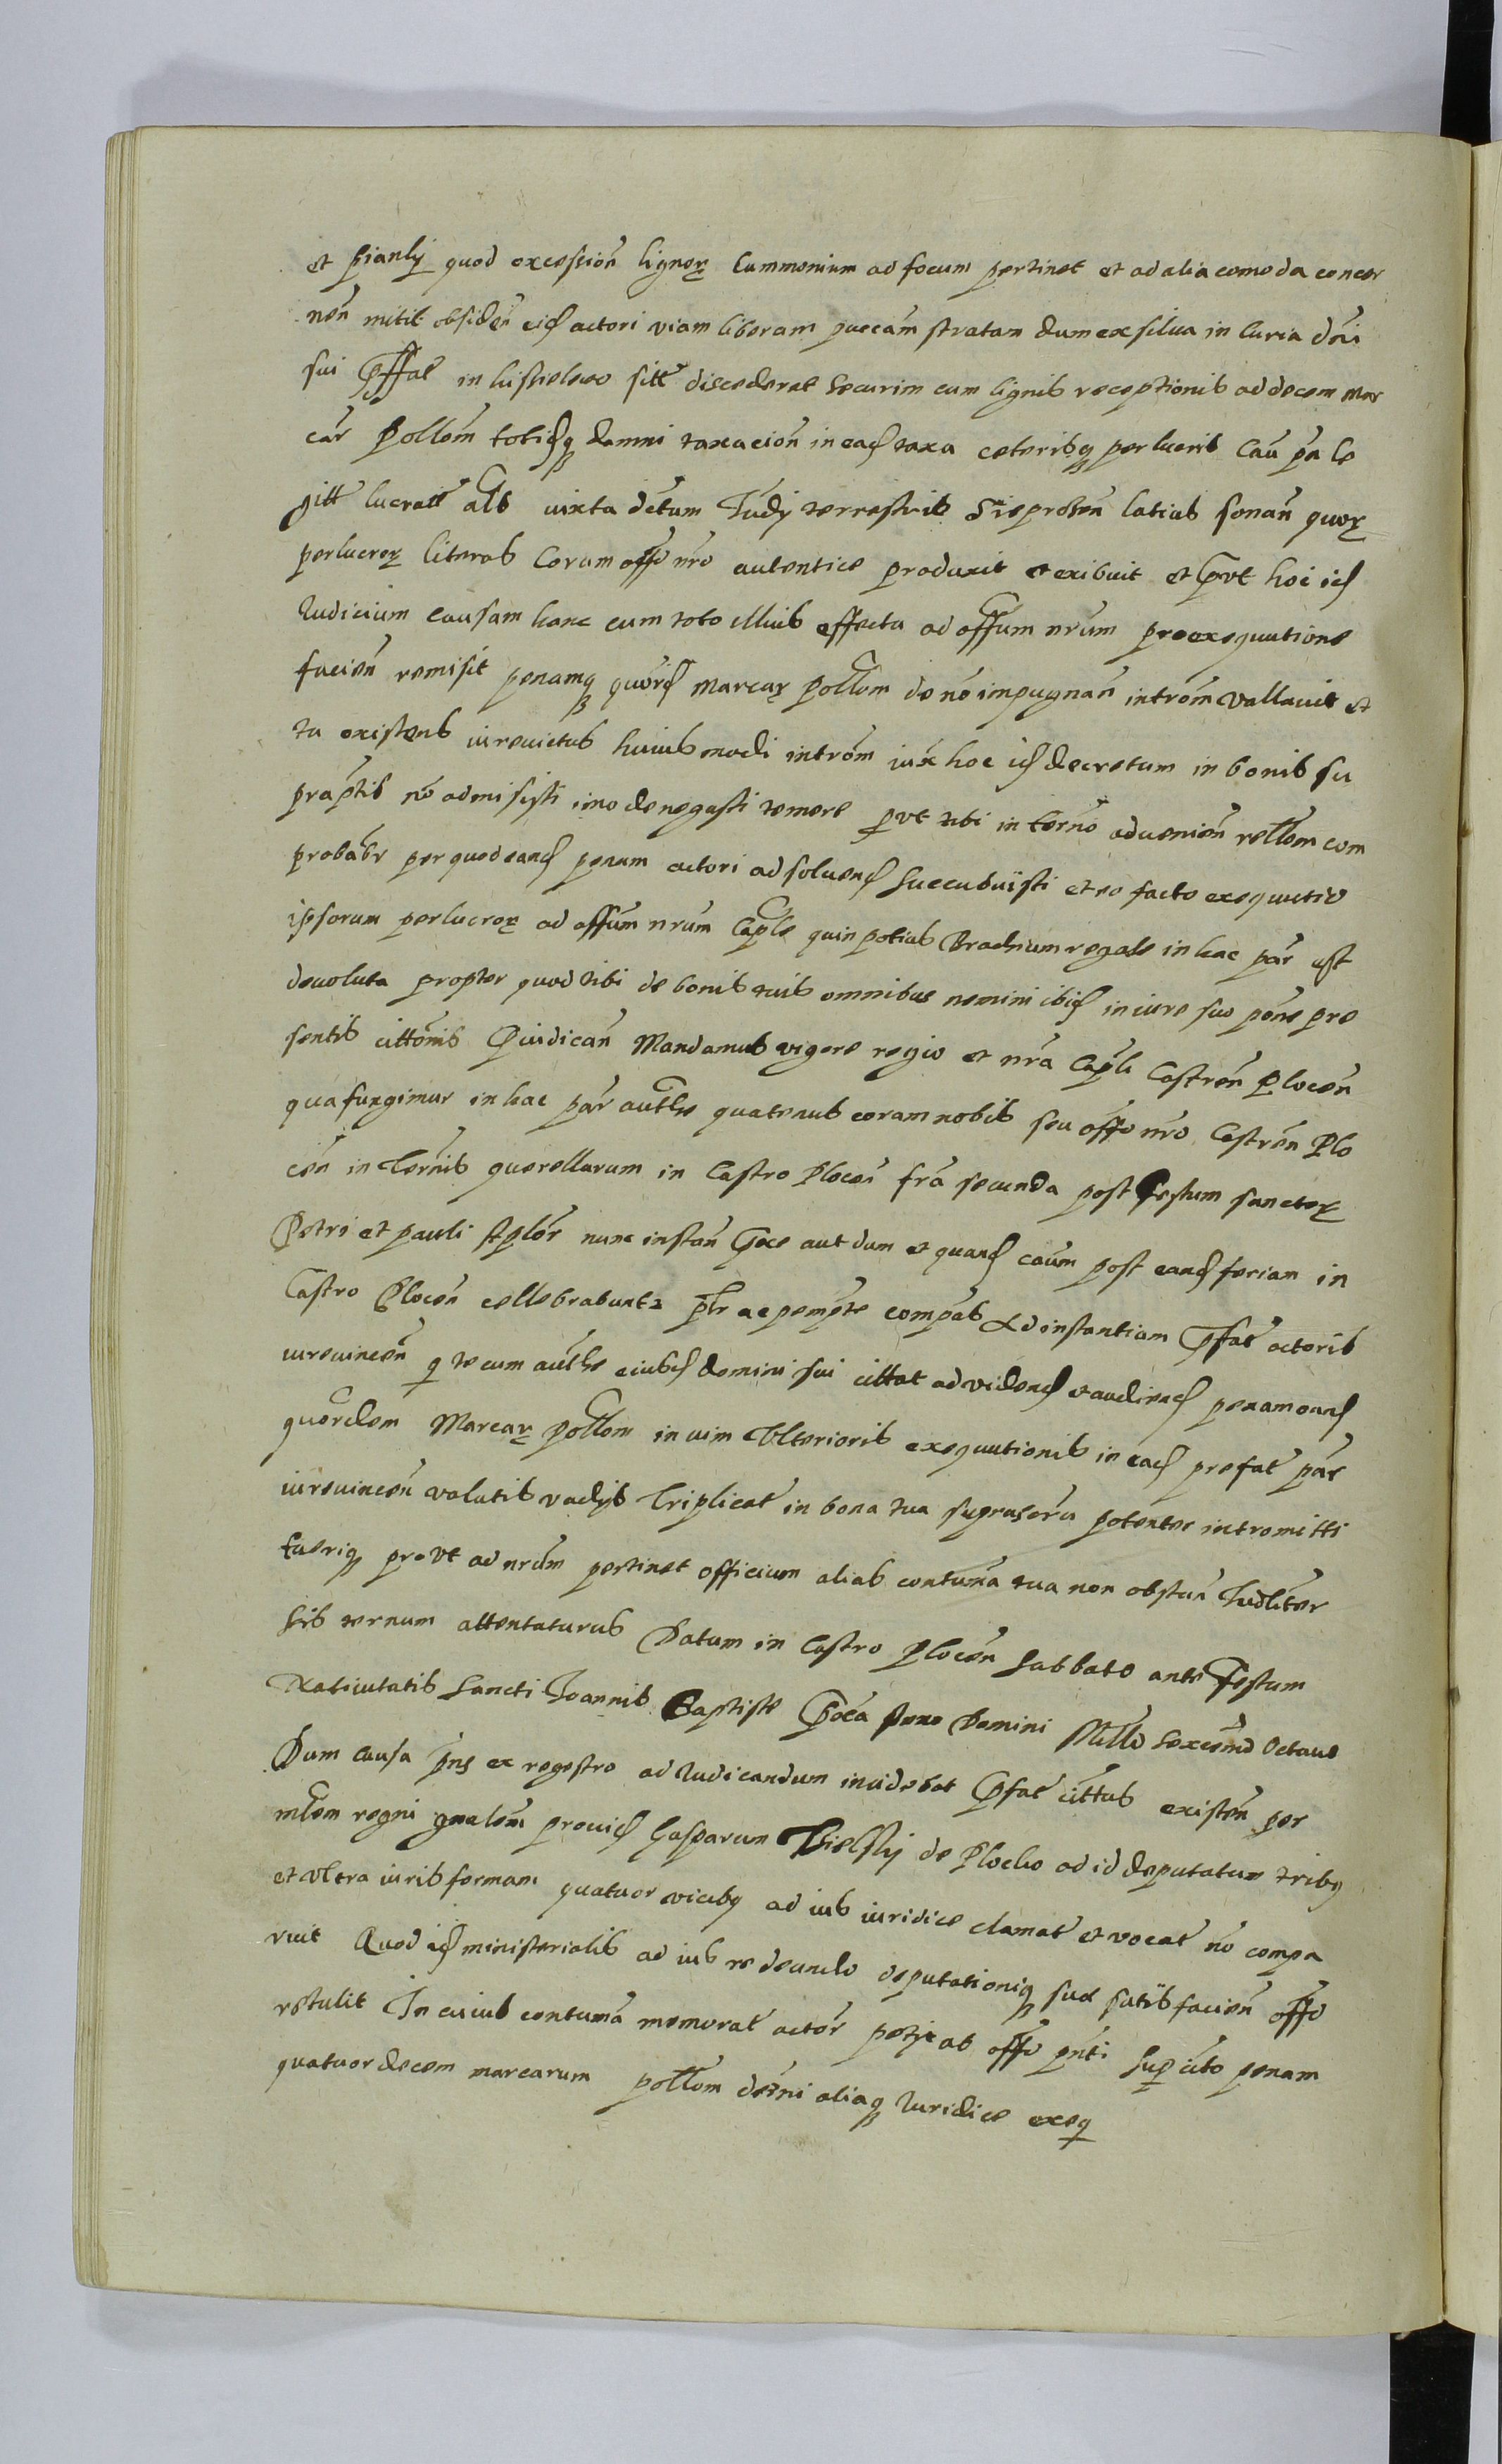 et pianly quod excession lignor Cummonium ad focum pertinet et ad alia comoda concer
nen mitit obsiden eid actori viam liberam puecam stratam dum ex silua in Curia dni
sui pffat in sitt discederet securim cum lignis receptionis ad decem mar
car Pollem totidq damni taxacion in ead taxa ceterisq perlucris Cau pa le
gitt lucratt als iuxta detum Judy terrestris Sieprcen latius sonan quor
perlucror literas Coram offo nro autentice produxit et exibuit et put hoc id
Iudicium causam hanc cum toto illius effectu ad offum nrum pro exequutione
facien remisit penamq quord marcar pollem de no impugnan introm vallauit et
tu existens iureuictus huiusmodi introm iux hoc id decretum in bonis su
praptis no admisisti imo denegasti temere put tibi in termo aduenien rellem com
probabr per quod eand penam actori ad soluend succubuisti et eo facto exequutio
ipsorum perlucror ad offum nrum Caple quin potius Brachium regale in hac par est
deuoluta propter quod tibi de bonis tuis omnibus nemini ibid in iure suo pone pre
sentis cittonis Quidican Mandamus vigore regio et nra Capli Castren Plocen
qua fungimur in hac par authe quatenus coram nobis seu offo nro Castren Plo
cen in Termis querellarum in Castro Plocen fra secunda post festum sanctor
Petri et pauli Aplor nunc instan pxe aut dum et quand caum post eand feriam in
Castro Plocen cellebrabuntr plr ac pempte compas Ad instantiam pfat actoris
iureuincen q te cum authe eiusd domini sui cittat ad vidend et audiend penam eand
quordem Marcar pollem in vim Vlterioris exequutionis in ead prefat par
iureuincen valutis vadys Triplicat in bona tua suprascra potenter intromitti
tueriq prout ad nrum pertinet officium alias contuma tua non obstan Iudliter
sis ternum attentaturus Datum in Castro Plocen Sabbato ante festum
Natiuitatis Sancti Joannis Baptiste Poca Anno Domini Mille sexcenmo Octauo
Dum causa pns ex regestro ad Iudicandum incidebat pfat cittus existen per
mlem regni gnalem prouid Gasparum Bielsky de Plocko ad id deputatum tribq
et vltra iuris formam quatuor vicibq ad ius iuridice clamat et vocat no compa
ruit Quod id ministerialis ad ius redeundo deputationiq sua satisfacien offo
retulit In cuius contuma memorat actor petyt ab offo pnti super cito penam
quatuordecem marcarum pollem decrni aliaq Iuridice exeq